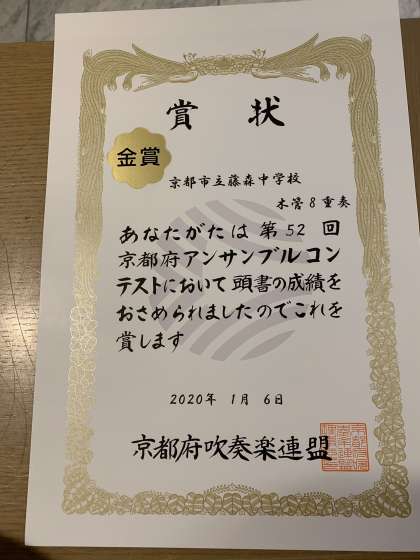 賞状
金賞
京都市立藤森中学校
木管8重奏
あなたがたは第52回
京都府アンサンブルコン
テストにおいて頭書の成績を
おさめられましたのでこれを
賞します
2020年 1月 6日
京都府吹奏楽連盟